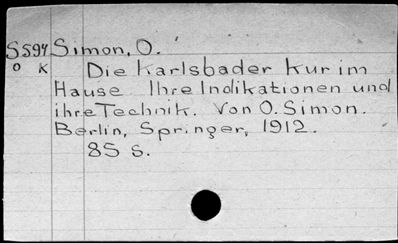 S594 Simon, O.
O K Die Karlsbader Kur im
Hause Ihre Indikationen und
ihre Technik. Von O. Simon.
Berlin, Springer, 1912.
85 S.